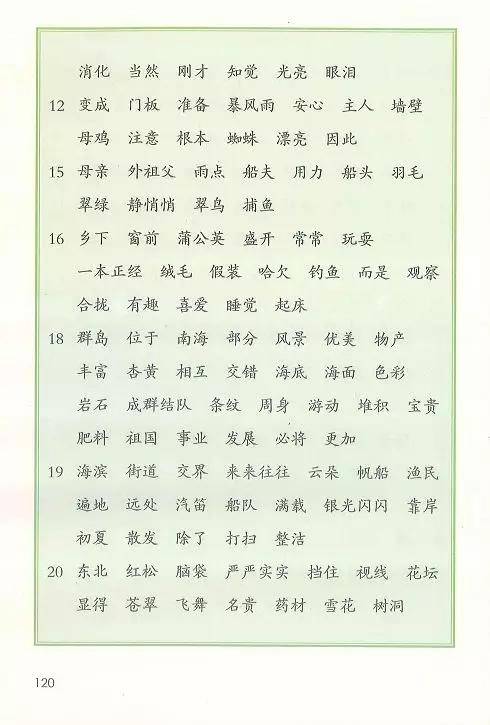 消化 当然 刚才 知觉 光亮 眼泪
12 变成 门板 准备 暴风雨 安心 主人 墙壁
母鸡 注意 根本 蜘蛛 漂亮 因此
15 母亲 外祖父 雨点 船夫 用力 船头 羽毛
翠绿 静悄悄 翠鸟 捕鱼
16 乡下 窗前 蒲公英 盛开 常常 玩耍
一本正经 绒毛 假装 哈欠 钓鱼 而是 观察
合拢 有趣 喜爱 睡觉 起床
18 群岛 位于 南海 部分 风景 优美 物产
丰富 杏黄 相互 交错 海底 海面 色彩
岩石 成群结队 条纹 周身 游动 堆积 宝贵
肥料 祖国 事业 发展 必将 更加
19 海滨 街道 交界 来来往往 云朵 帆船 渔民
遍地 远处 汽笛 船队 满载 银光闪闪 靠岸
初夏 散发 除了 打扫 整洁
20 东北 红松 脑袋 严严实实 挡住 视线 花坛
显得 苍翠 飞舞 名贵 药材 雪花 树洞
120